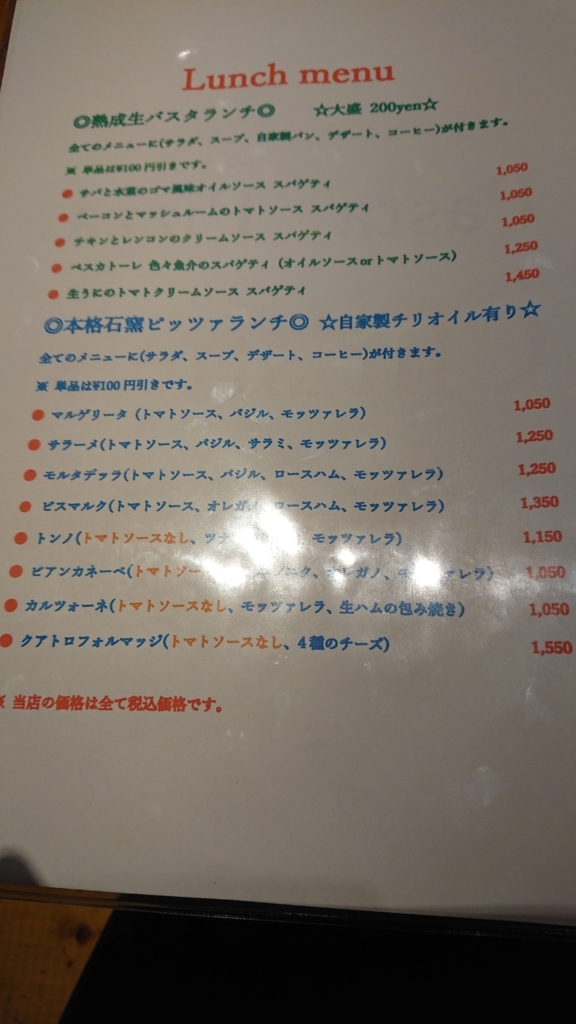 Lunch menu
◎熟成生パスタランチ◎ ☆大盛 200yen☆
全てのメニューに(サラダ、スープ、自家製パン、デザート、コーヒー)が付きます。
※ 単品は¥100円引きです。
● サバと水菜のゴマ風味オイルソース スパゲティ 1,050
● ベーコンとマッシュルームのトマトソース スパゲティ 1,050
● チキンとレンコンのクリームソース スパゲティ 1,050
● ペスカトーレ 色々魚介のスパゲティ (オイルソースorトマトソース) 1,250
● 生うにのトマトクリームソース スパゲティ 1,450
◎本格石窯ピッツァランチ◎ ☆自家製チリオイル有り☆
全てのメニューに(サラダ、スープ、デザート、コーヒー)が付きます。
※ 単品は¥100円引きです。
● マルゲリータ (トマトソース、バジル、モッツァレラ) 1,050
● サラーメ(トマトソース、バジル、サラミ、モッツァレラ) 1,250
● モルタデッラ(トマトソース、バジル、ロースハム、モッツァレラ) 1,250
● ビスマルク(トマトソース、オレガノ、ロースハム、モッツァレラ) 1,350
● トンノ(トマトソースなし、ツナ、モッツァレラ) 1,150
● ビアンカネーベ(トマトソー オレガノ、モッツァレラ) 1,050
● カルツォーネ(トマトソースなし、モッツァレラ、生ハムの包み焼き) 1,050
● クアトロフォルマッジ(トマトソースなし、4種のチーズ) 1,550
※ 当店の価格は全て税込価格です。